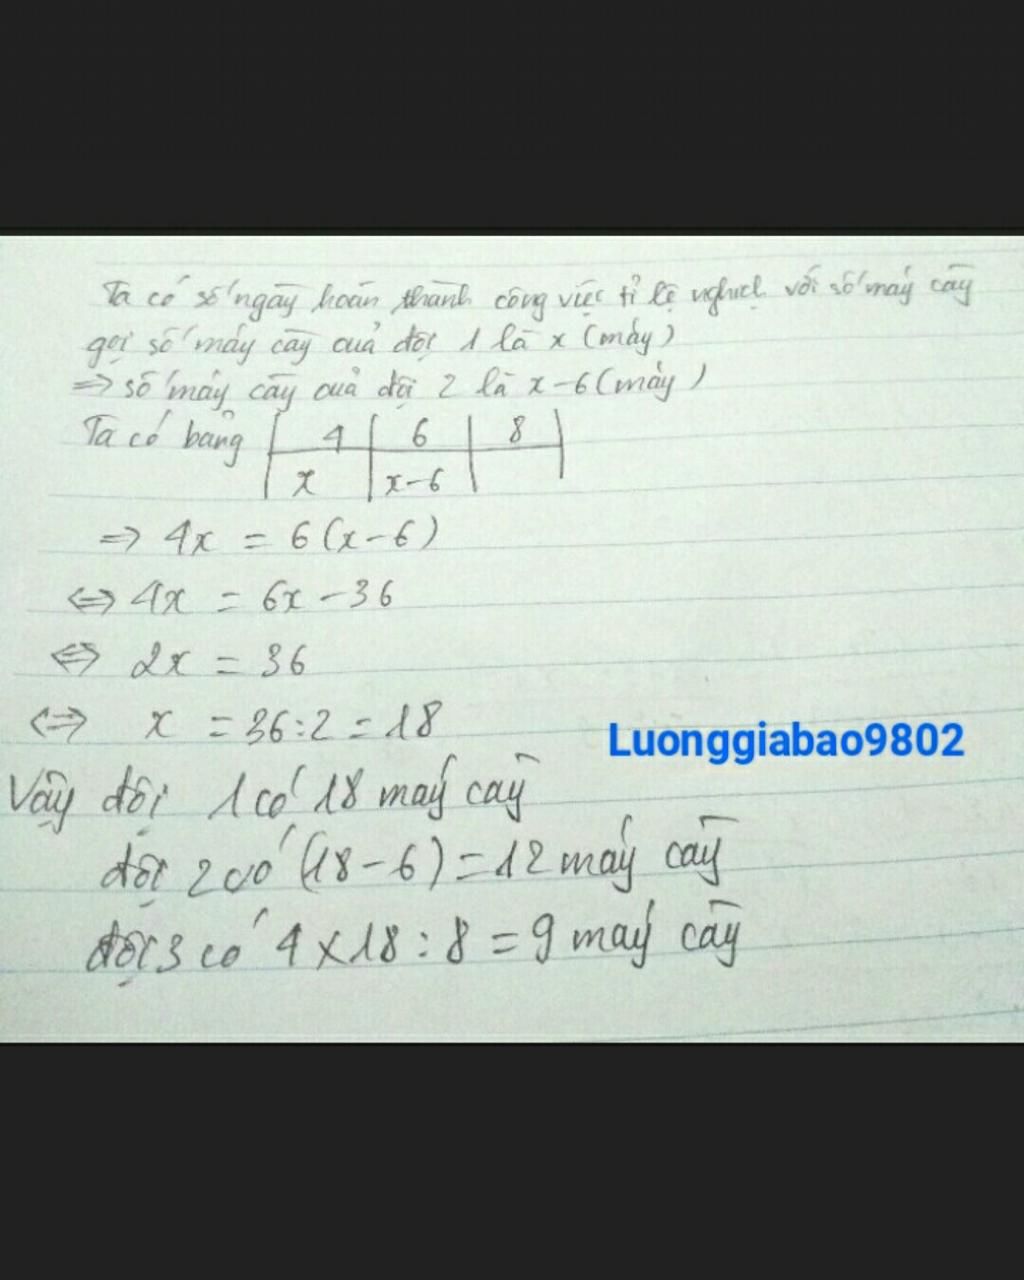 Ta có số ngày hoàn thành công việc tỉ lệ nghịch với số máy cày
gọi số máy cày của đội 1 là x (máy)
=> số máy cày của đội 2 là x-6 (máy)
Ta có bảng | 4 | 6 | 8 |
| x | x-6 |
=> 4x = 6(x-6)
<=> 4x = 6x - 36
<=> 2x = 36
<=> x = 36:2 = 18
Luonggiabao9802
Vậy đội 1 có 18 máy cày
đội 2 có (18-6) = 12 máy cày
đội 3 có 4 x 18 : 8 = 9 máy cày